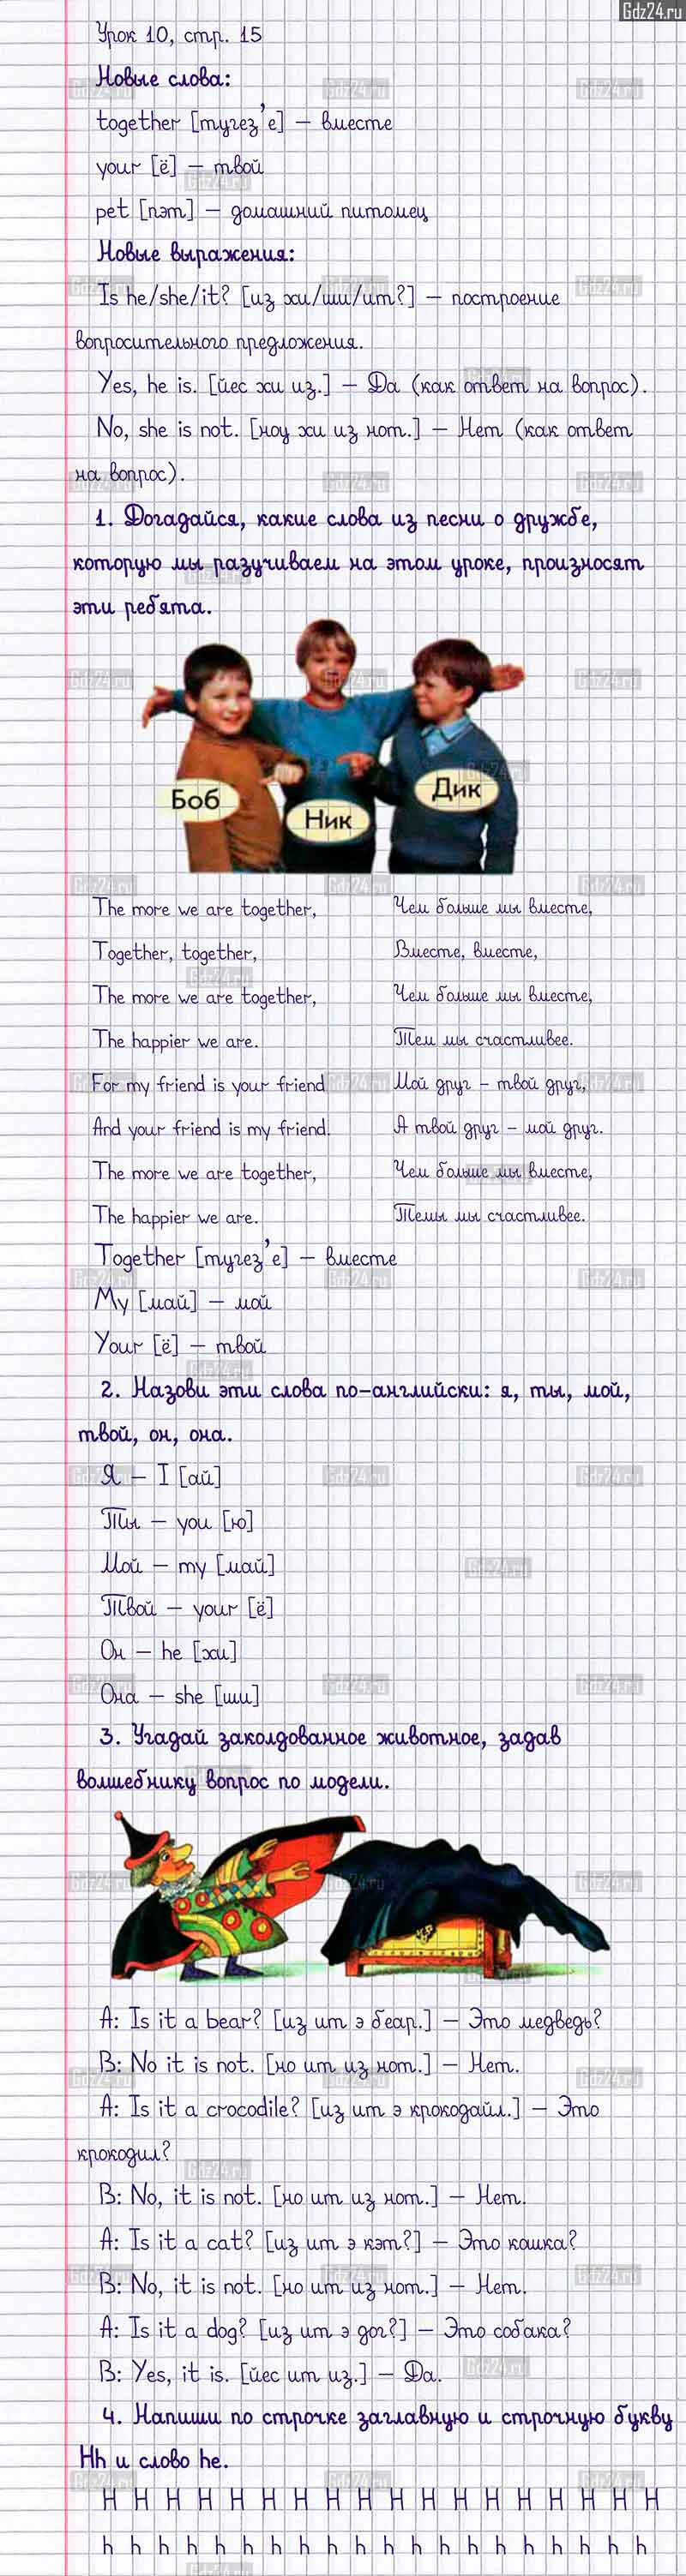 Gdz24.ru
Урок 10, стр. 15
Новые слова:
together [тугез'е] – вместе
your [ё] – твой
pet [пэт] – домашний питомец
Новые выражения:
Is he/she/it? [из хи/ши/ит?] – построение
вопросительного предложения.
Yes, he is. [йес хи из.] – Да (как ответ на вопрос).
No, she is not. [ноу хи из нот.] – Нет (как ответ
на вопрос).
1. Догадайся, какие слова из песни о дружбе,
которую мы разучиваем на этом уроке, произносят
эти ребята.
Боб
Ник
Дик
The more we are together, Чем больше мы вместе,
Together, together, Вместе, вместе,
The more we are together, Чем больше мы вместе,
The happier we are. Тем мы счастливее.
For my friend is your friend Мой друг – твой друг,
And your friend is my friend. А твой друг – мой друг.
The more we are together, Чем больше мы вместе,
The happier we are. Темы мы счастливее.
Together [тугез'е] – вместе
My [май] – мой
Your [ё] – твой
2. Назови эти слова по-английски: я, ты, мой,
твой, он, она.
Я – I [ай]
Ты – you [ю]
Мой – my [май]
Твой – your [ё]
Он – he [хи]
Она – she [ши]
3. Угадай заколдованное животное, задав
волшебнику вопрос по модели.
A: Is it a bear? [из ит э беар.] – Это медведь?
B: No it is not. [но ит из нот.] – Нет.
A: Is it a crocodile? [из ит э крокодайл.] – Это
крокодил?
B: No, it is not. [но ит из нот.] – Нет.
A: Is it a cat? [из ит э кэт?] – Это кошка?
B: No, it is not. [но ит из нот.] – Нет.
A: Is it a dog? [из ит э дог?] – Это собака?
B: Yes, it is. [йес ит из.] – Да.
4. Напиши по строчке заглавную и строчную букву
Hh и слово he.
H H H H H H H H H H H H H H H H H H
h h h h h h h h h h h h h h h h h h h h